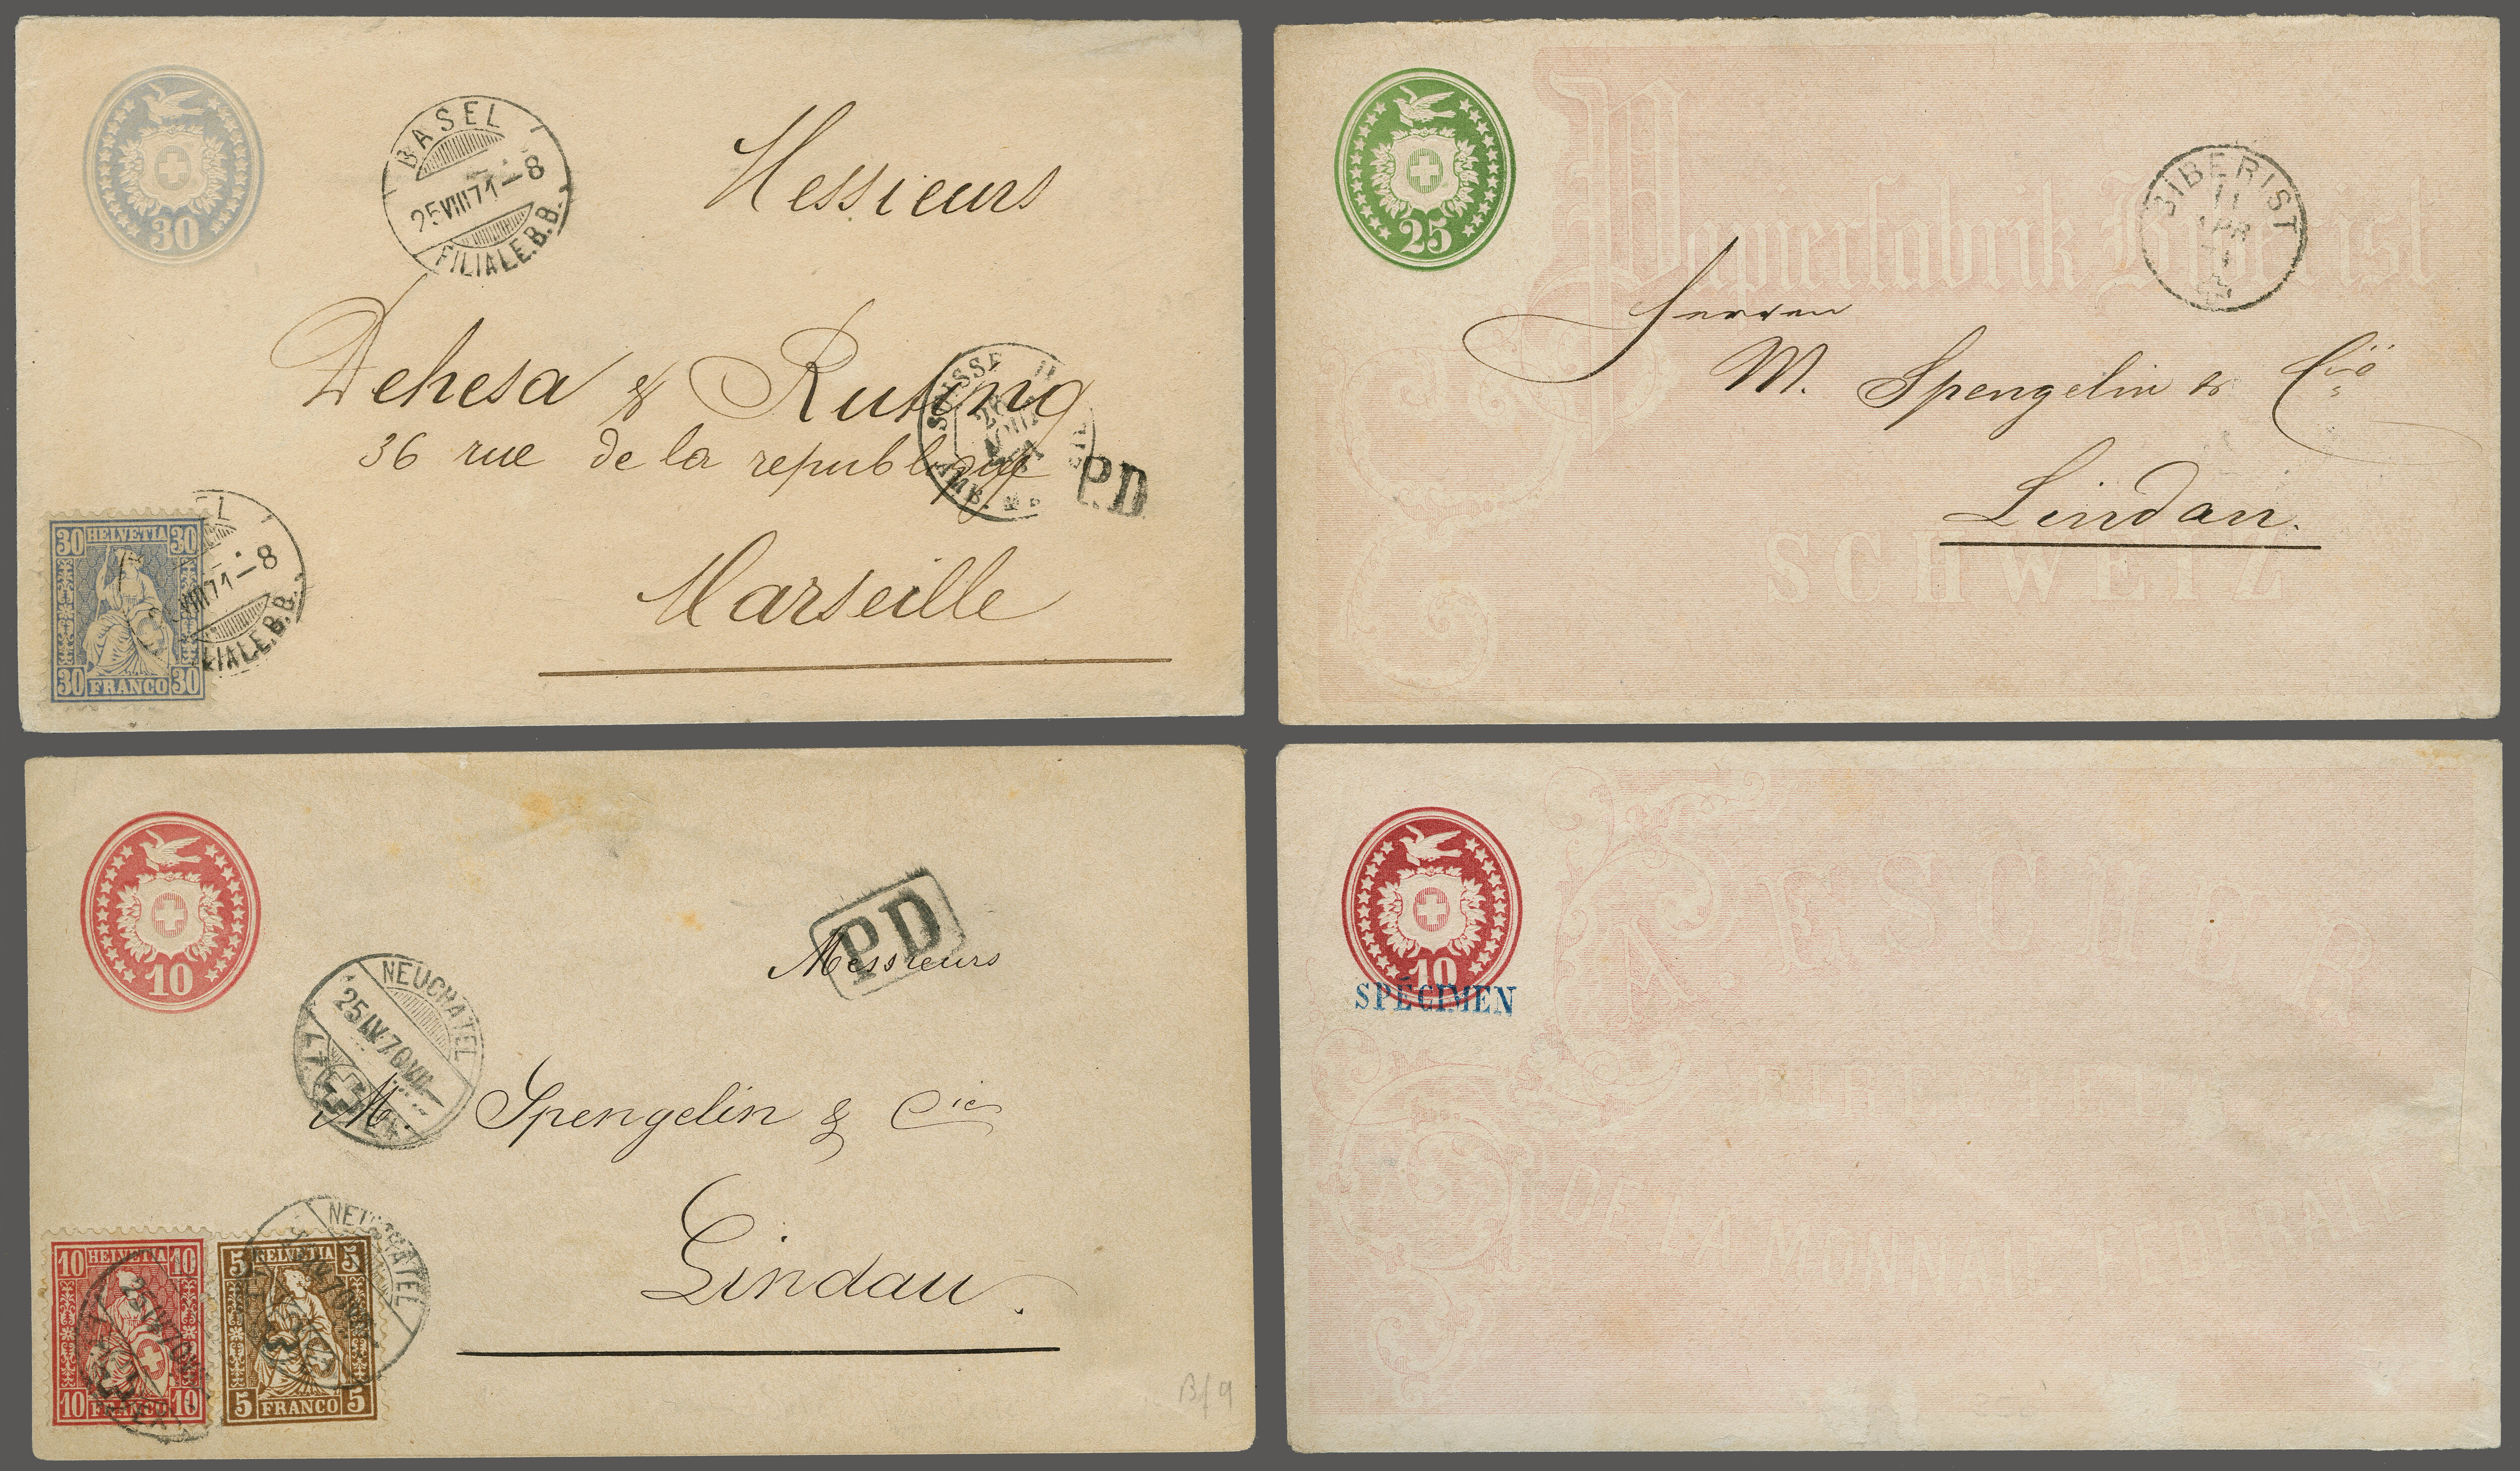 30
BASEL
25 VIII 71 – 8
FILIALE.B.B.
Messieurs
Dehesa & Rusing
36 rue de la republique
SUISSE
AOUT
71
AMB.
P.D
Marseille
30 HELVETIA 30
VIII 71 – 8
LIALE.B.B.
30 FRANCO 30
25
Papierfabrik Biberist
BIBERIST
11
APR
Herren
M. Spengelin & Cie
Lindau.
SCHWEIZ
10
PD
Messieurs
NEUCHATEL
25 IV 70
M. Spengelin & Cie
Lindau.
10 HELVETIA 10
5 HELVETIA 5
NEUCHATEL
25 IV 70
10 FRANCO 10
5 FRANCO 5
10
SPÉCIMEN
A. ESCHER
DIRECTEUR
DE LA MONNAIE FÉDÉRALE